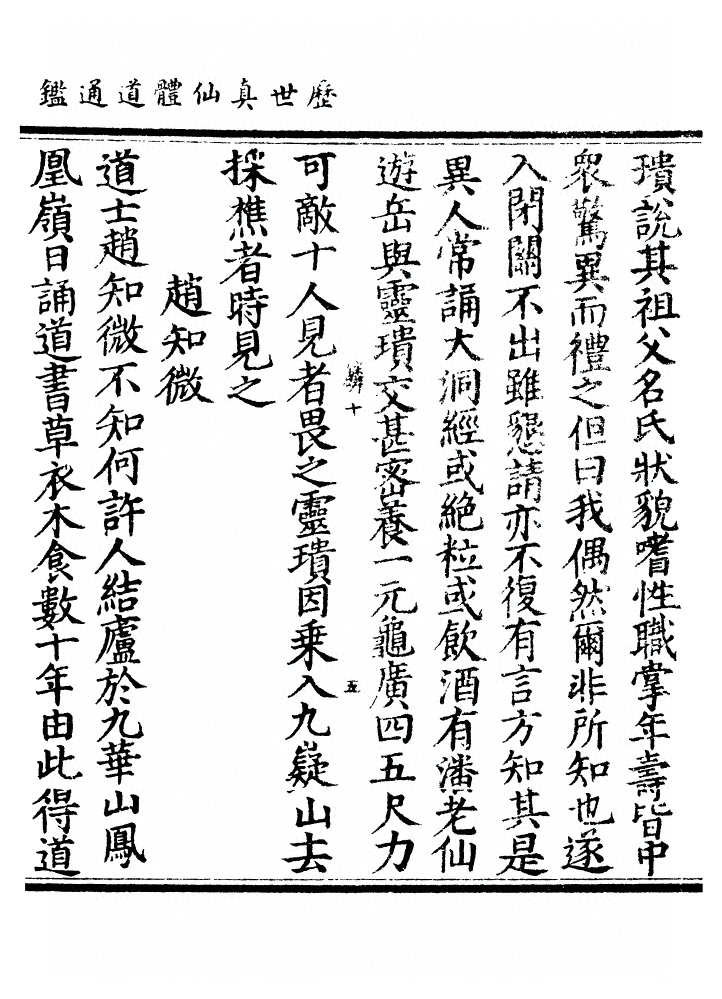 歷世真仙體道通鑑
璝說其祖父名氏狀貌嗜性職掌年壽皆中
衆驚異而禮之但曰我偶然爾非所知也遂
入閉關不出雖懇請亦不復有言方知其是
異人常誦大洞經或絕粒或飲酒有潘老仙
遊岳與靈璝交甚密養一元龜廣四五尺力
麟十
五
可敵十人見者畏之靈璝因乗入九嶷山去
採樵者時見之
趙知微
道士趙知微不知何許人結廬於九華山鳳
凰嶺日誦道書草衣木食數十年由此得道